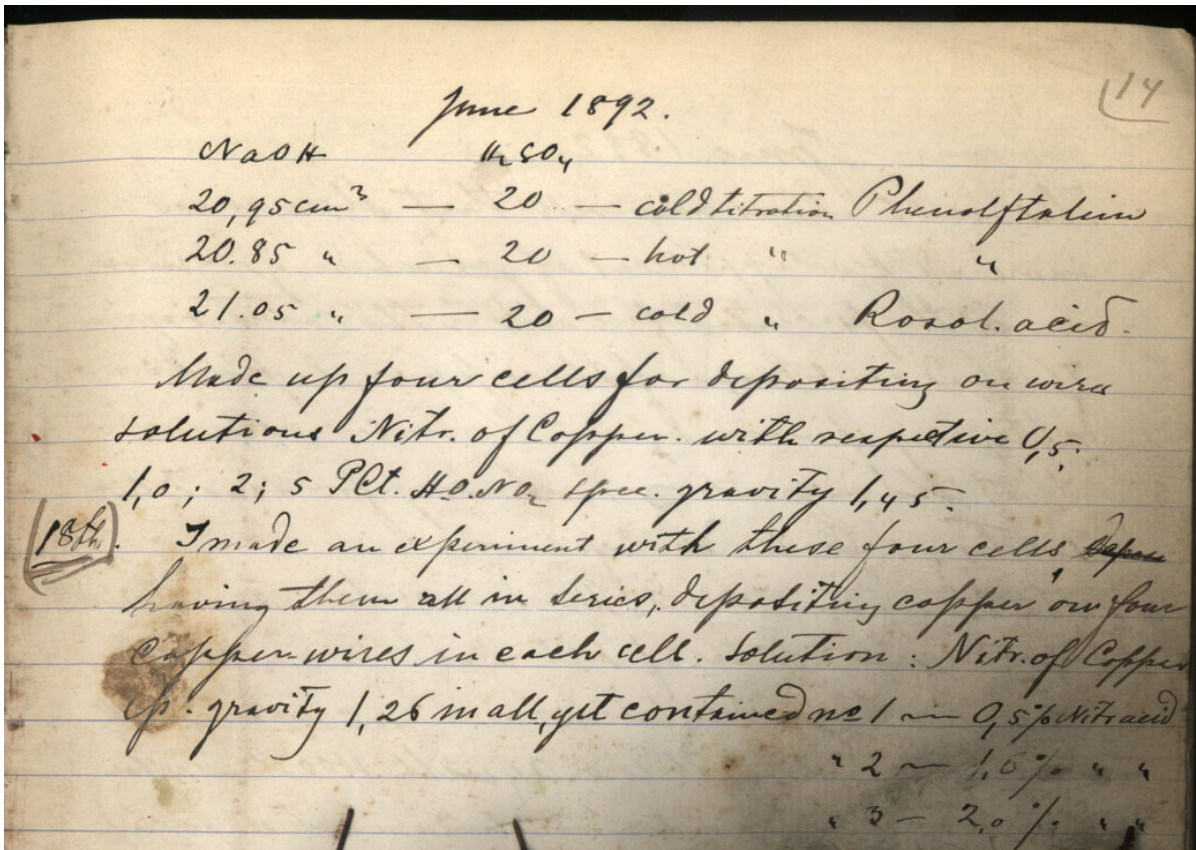 14
June 1892.
NaOH H2SO4
20,95 cm3 — 20 — cold titration Phenolftalein
20.85 " — 20 — hot " "
21.05 " — 20 — cold " Rosol. acid.
Made up four cells for depositing on wires
solutions Nitr. of Copper. with respective 0,5;
1,0; 2; 5 PCt. HO.NO2 spec. gravity 1,45.
18th. I made an experiment with these four cells,
having them all in series, depositing copper on four
copper-wires in each cell. Solution: Nitr. of Copper
Sp. gravity 1,26 in all, yet contained no 1 — 0,5% Nitr acid
" 2 — 1,0% " "
" 3 — 2,0% " "